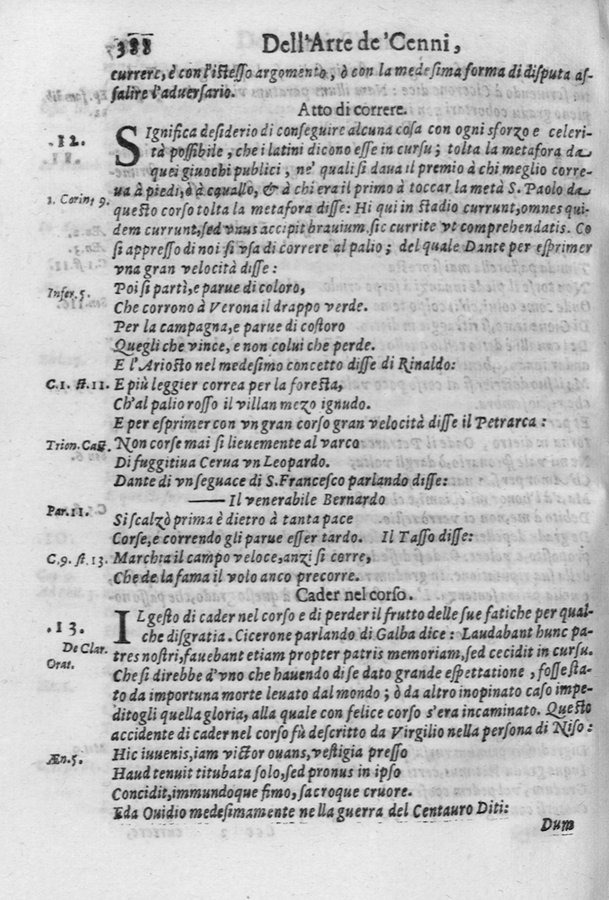 388
Dell'Arte de'Cenni,
currere, è con l'istesso argomento, ò con la medesima forma di disputa as-
salire l'adversario.
Atto di correre.
.12.
SIgnifica desiderio di conseguire alcuna cosa con ogni sforzo e celeri-
tà possibile, che i latini dicono esse in cursu; tolta la metafora da
quei giuochi publici, ne' quali si daua il premio à chi meglio corre-
ua à piedi, ò à cauallo, & à chi era il primo à toccar la metà S. Paolo da
1. Corint. 9.
questo corso tolta la metafora disse: Hi qui in stadio currunt, omnes qui-
dem currunt, sed vnus accipit brauium. sic currite vt comprehendatis. Co
si appresso di noi si vsa di correre al palio; del quale Dante per esprimer
vna gran velocità disse:
Infer. 5.
Poi si partì, e parue di coloro,
Che corrono à Verona il drappo verde.
Per la campagna, e parue di costoro
Quegli che vince, e non colui che perde.
E l'Ariosto nel medesimo concetto disse di Rinaldo:
C.1. st.11.
E più leggier correa per la foresta,
Ch'al palio rosso il villan mezo ignudo.
E per esprimer con vn gran corso gran velocità disse il Petrarca:
Trion. Cast.
Non corse mai si lieuemente al varco
Di fuggitiua Cerua vn Leopardo.
Dante di vn seguace di S. Francesco parlando disse:
—— Il venerabile Bernardo
Par. 11.
Si scalzò prima è dietro à tanta pace
Corse, e correndo gli parue esser tardo. Il Tasso disse:
C.9. st. 13.
Marchia il campo veloce, anzi si corre,
Che de la fama il volo anco precorre.
Cader nel corso.
.13.
IL gesto di cader nel corso e di perder il frutto delle sue fatiche per qual-
che disgratia. Cicerone parlando di Galba dice: Laudabant hunc pa-
De Clar.
Orat.
tres nostri, fauebant etiam propter patris memoriam, sed cecidit in cursu.
Che si direbbe d'vno che hauendo di se dato grande espettatione, fosse sta-
to da importuna morte leuato dal mondo; ò da altro inopinato caso impe-
ditogli quella gloria, alla quale con felice corso s'era incaminato. Questo
accidente di cader nel corso fù descritto da Virgilio nella persona di Niso:
Æn. 5.
Hic iuuenis, iam victor ouans, vestigia presso
Haud tenuit titubata solo, sed pronus in ipso
Concidit, immundoque fimo, sacroque cruore.
Eda Ouidio medesimamente nella guerra del Centauro Diti:
Dum